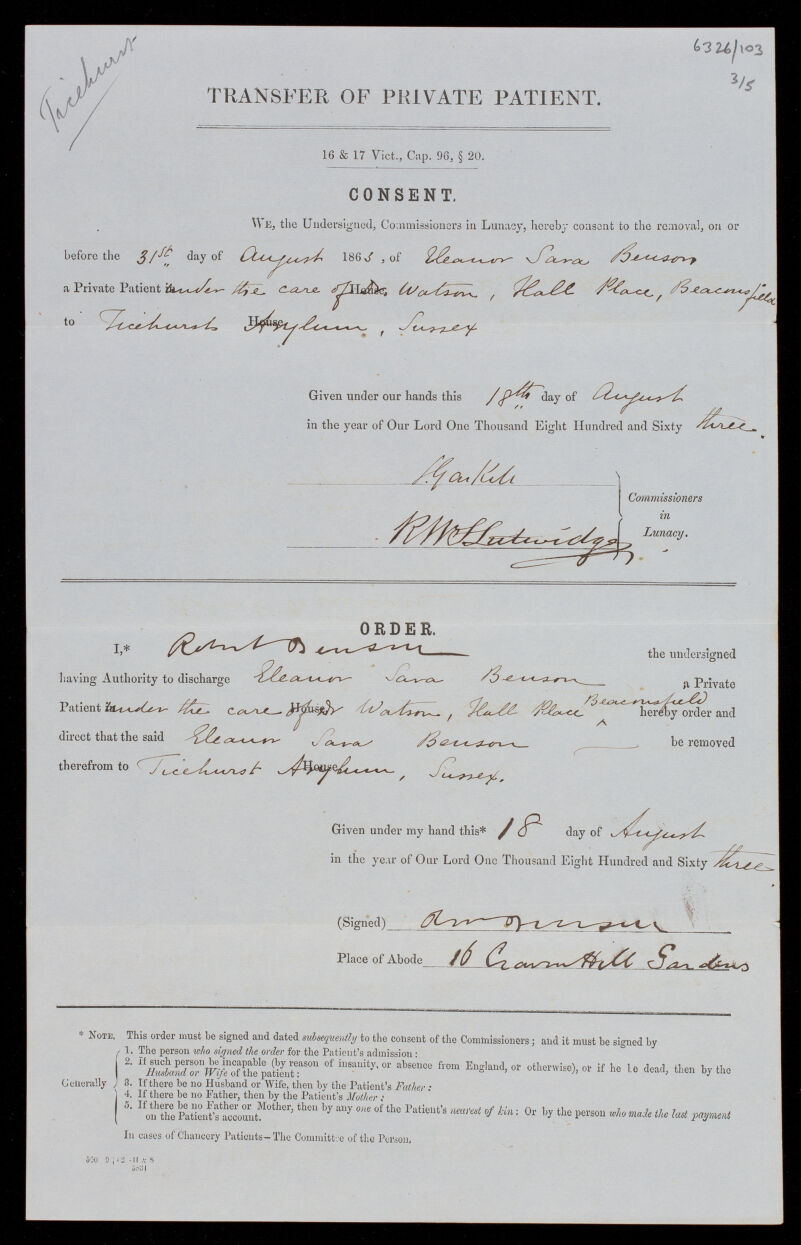 Ticehurst
6326/103
3/5
TRANSFER OF PRIVATE PATIENT.
16 & 17 Vict., Cap. 96, § 20.
CONSENT.
WE, the Undersigned, Commissioners in Lunacy, hereby consent to the removal, on or
before the 31st day of August 1863, of Eleanor Sara Benson
a Private Patient under the care of Dr. Watson, Hall Place, Beaconsfield
to Ticehurst House Asylum, Sussex
Given under our hands this 18th day of August
in the year of Our Lord One Thousand Eight Hundred and Sixty three.
S. Gaskell
RWS Lutwidge
Commissioners
in
Lunacy.
ORDER.
I,* Robert Benson the undersigned
having Authority to discharge Eleanor Sara Benson a Private
Patient under the care of Dr Watson, Hall Place Beaconsfield hereby order and
direct that the said Eleanor Sara Benson be removed
therefrom to Ticehurst House Asylum, Sussex.
Given under my hand this* 18 day of August
in the year of Our Lord One Thousand Eight Hundred and Sixty three.
(Signed) Benson
Place of Abode 16 Craven Hill Gardens
* NOTE. This order must be signed and dated subsequently to the consent of the Commissioners; and it must be signed by
Generally
1. The person who signed the order for the Patient's admission:
2. If such person be incapable (by reason of insanity, or absence from England, or otherwise), or if he be dead, then by the
Husband or Wife of the patient:
3. If there be no Husband or Wife, then by the Patient's Father:
4. If there be no Father, then by the Patient's Mother:
5. If there be no Father or Mother, then by any one of the Patient's nearest of kin: Or by the person who made the last payment
on the Patient's account.
In cases of Chancery Patients—The Committee of the Person.